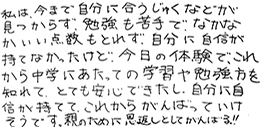 私は、今まで自分に合うじゅくなどが
見つからず、勉強も苦手でなかな
かいい点数もとれず、自分に自信が
持てなかったけど、今日の体験でこれ
から中学にあたっての学習や勉強方を
知れて、とても安心できたし、自分に自
信が持てて、これからがんばっていけ
そうです。親のために恩返しとしてがんばる!!